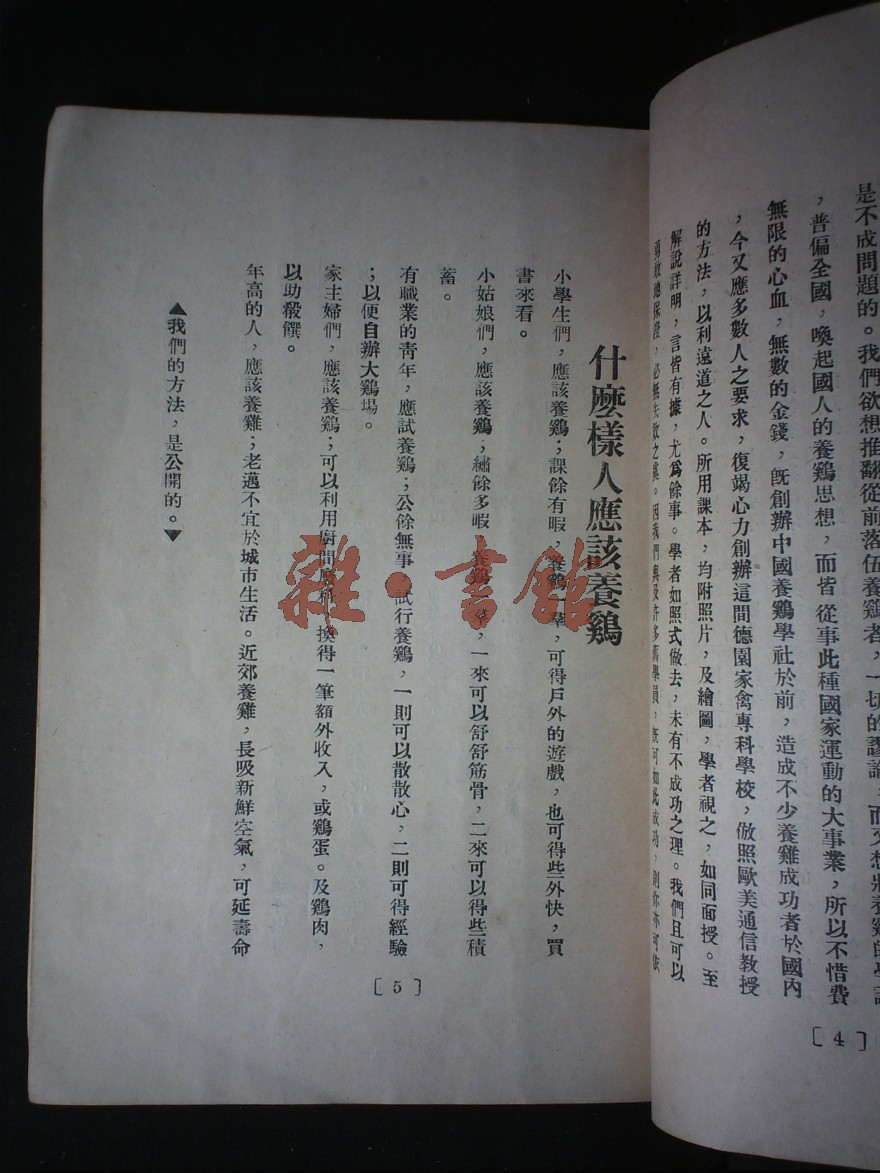 是不成問題的。我們欲想推翻從前落伍養鷄者,一切的謬論,而又想將養鷄的學識
,普偏全國,喚起國人的養鷄思想,而皆從事此種國家運動的大事業,所以不惜費
無限的心血,無數的金錢,旣創辦中國養鷄學社於前,造成不少養雞成功者於國內
,今又應多數人之要求,復竭心力創辦這間德園家禽專科學校,倣照歐美通信教授
的方法,以利遠道之人。所用課本,均附照片,及繪圖,學者視之,如同面授。至
解說詳明,言皆有據,尤爲餘事。學者如照式做去,未有不成功之理。我們且可以
保證,必無失敗之虞。因我們
[4]
什麼樣人應該養鷄
小學生們,應該養鷄;課餘有暇,養鷄一羣,可得戶外的遊戲,也可得些外快,買
書來看。
小姑娘們,應該養鷄;繡餘多暇,養鷄一羣,一來可以舒舒筋骨,二來可以得些積
蓄。
有職業的靑年,應試養鷄;公餘無事,試行養鷄,一則可以散散心,二則可得經驗
;以便自辦大鷄場。
家主婦們,應該養鷄;可以利用廚間廢料,換得一筆額外收入,或鷄蛋。及鷄肉,
以助殽饌。
年高的人,應該養雞;老邁不宜於城市生活。近郊養雞,長吸新鮮空氣,可延壽命
▲我們的方法,是公開的。▼
[5]
雜·書館